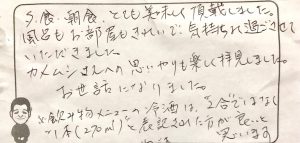 夕食、朝食、とても美味しく頂戴しました。
風呂もお部屋もきれいで、気持ち良く過ごさせて
いただきました。
カメムシさんへの思いやりも楽しく拝見しました。
お世話になりました。
※飲み物メニューの冷酒は、"2合"ではなく
"1本(270ml)"と表記された方が良いと
思います